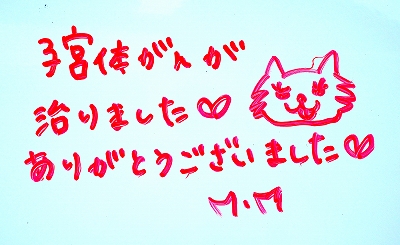 子宮体がんが
治りました♡
ありがとうございました♡
M・M